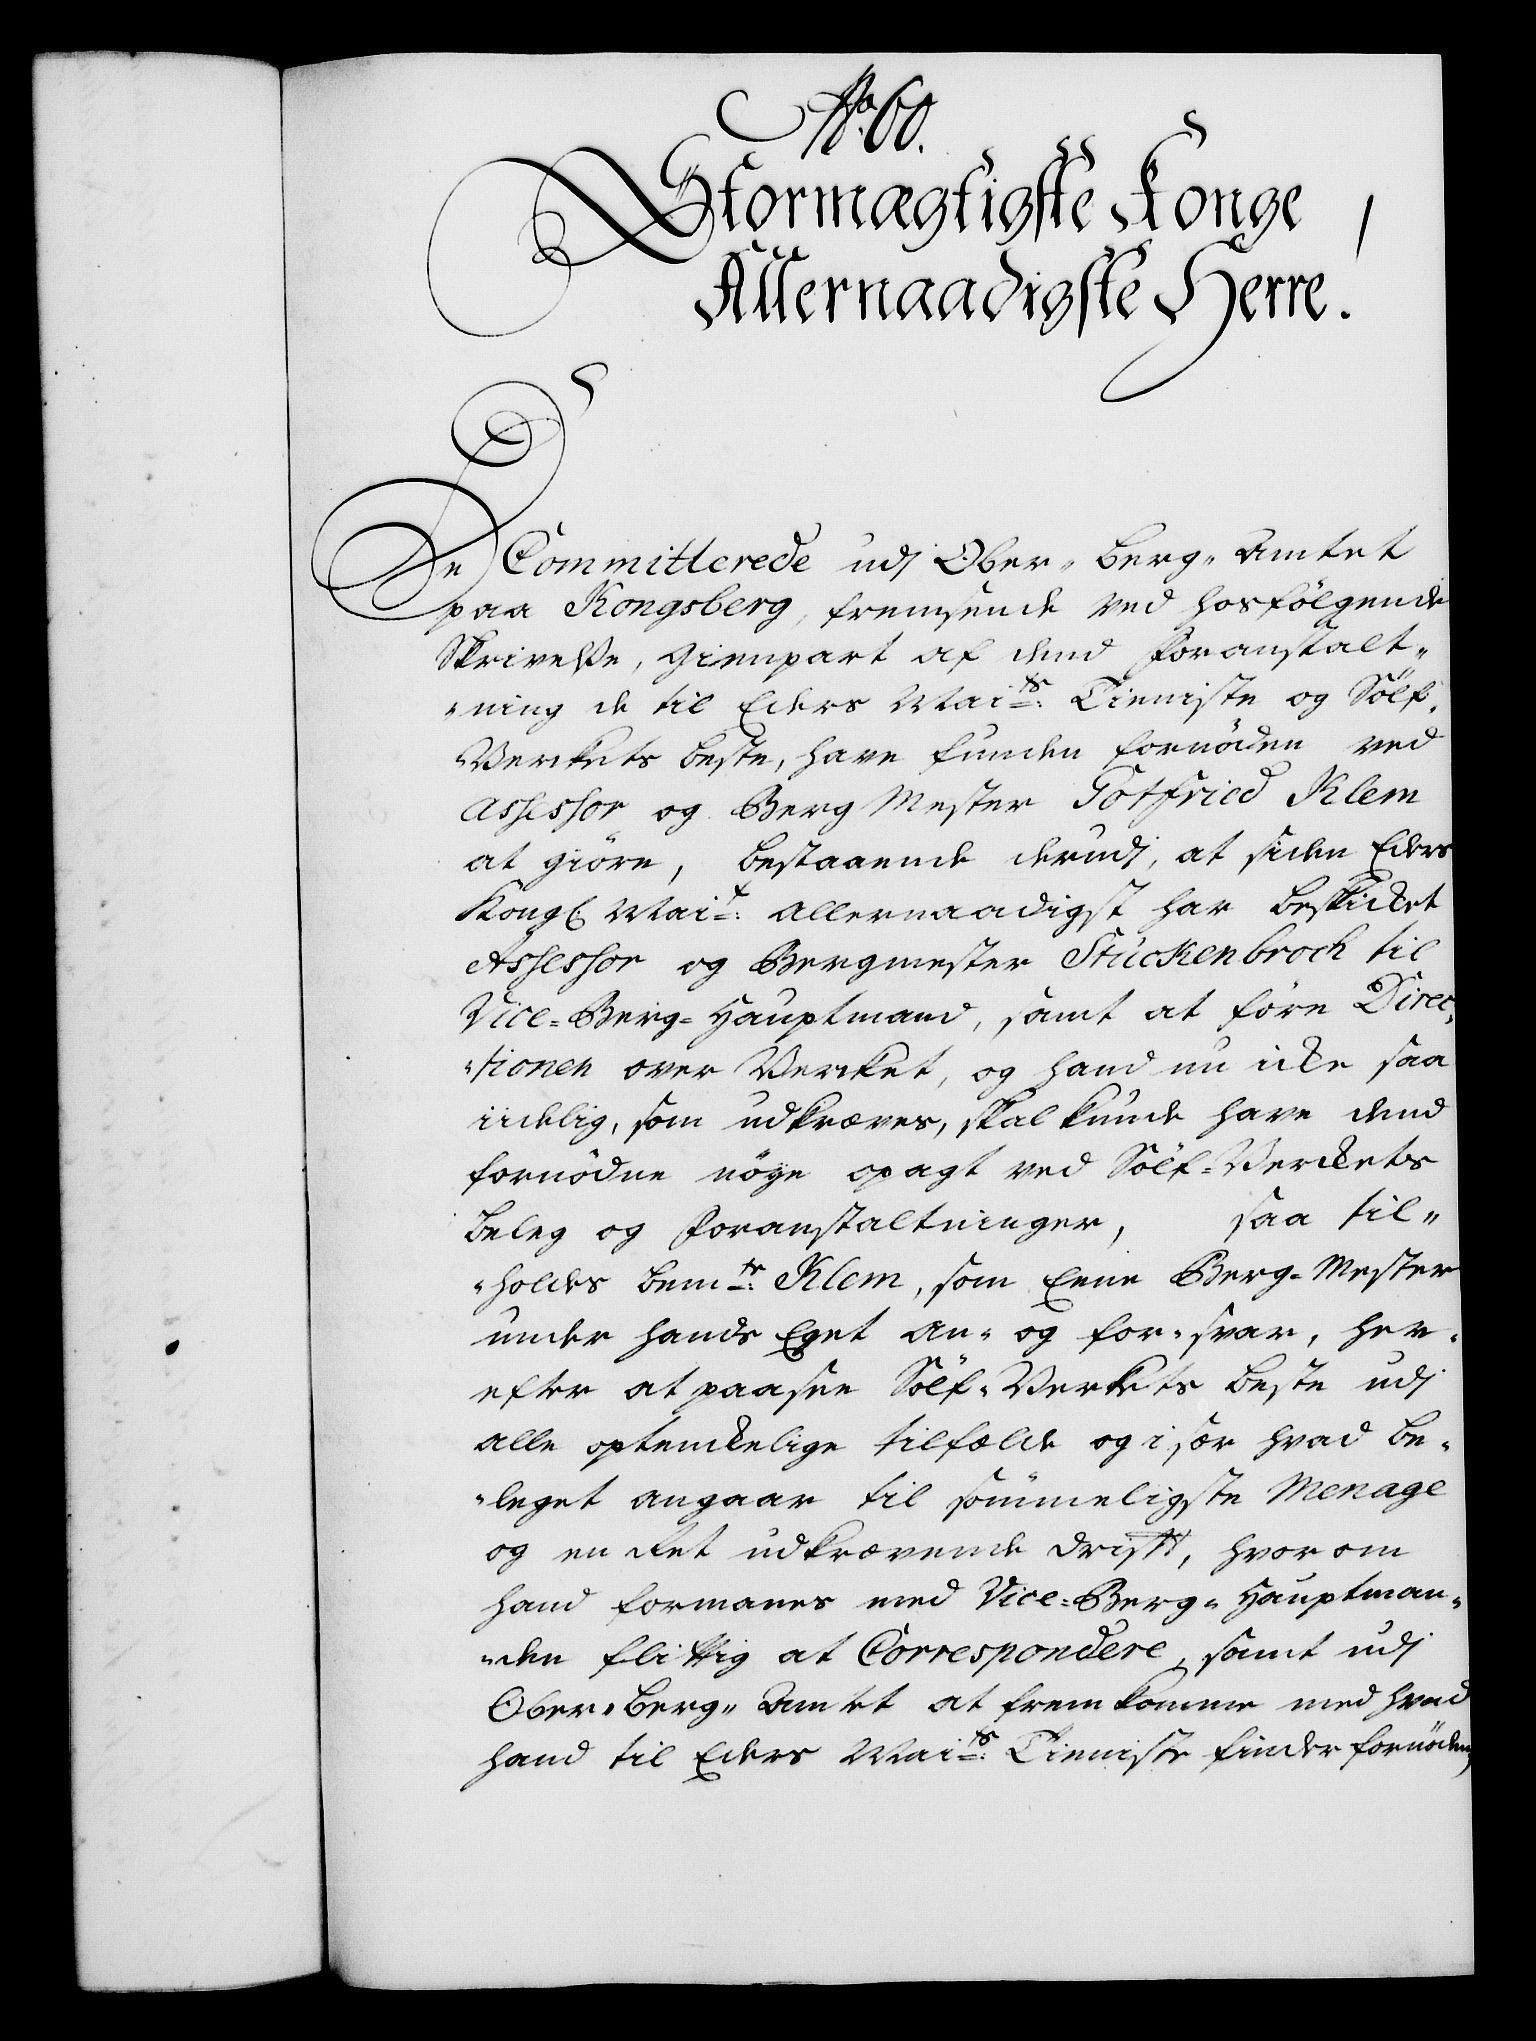 No. 60.
Stormægtigste Konge
Allernaadigste Herre.
De Committerede udj Ober„ berg„ Amtet
paa Kongsberg, fremsende ved hosfölgende
Skrivelse, Gienpart af dend Foranstalt„
„ning de til Eders Mai:ts Tieniste og Sölf„
„Verkets beste, have funden fornöden ved
Assessor og Berg Mester Gotfried Klem
at giöre, bestaaende derudj, at siden Eders
Kongl. Mai:t allernaadigst har beskicket
Assessor og Bergmester Stuckenbroch til
Vice=Berg=Hauptmand, samt at före Direc„
„tionen over Verket, og hand nu icke saa
iidelig, som udkræves, skal kunde have dend
fornödne nöye opagt ved Sölf=Verckets
beleg og Foranstaltninger, saa til„
„holdes bem:te Klem, som Eene Berg=Mester
under hands Eget an„ og for„svar, her„
efter at paasee Sölf„Verkets beste udj
alle optenckelige tilfælde og i sær hvad be„
„leget angaar til sömmeligste Menage
og en ret udkrævende drift, hvorom
hand formanes med Vice=Berg=Hauptman„
„den flittig at Correspondere, samt udj
Ober„berg„Amtet at fremkomme med hvad
hand til Eders Mai:ts Tieniste finder fornöden,